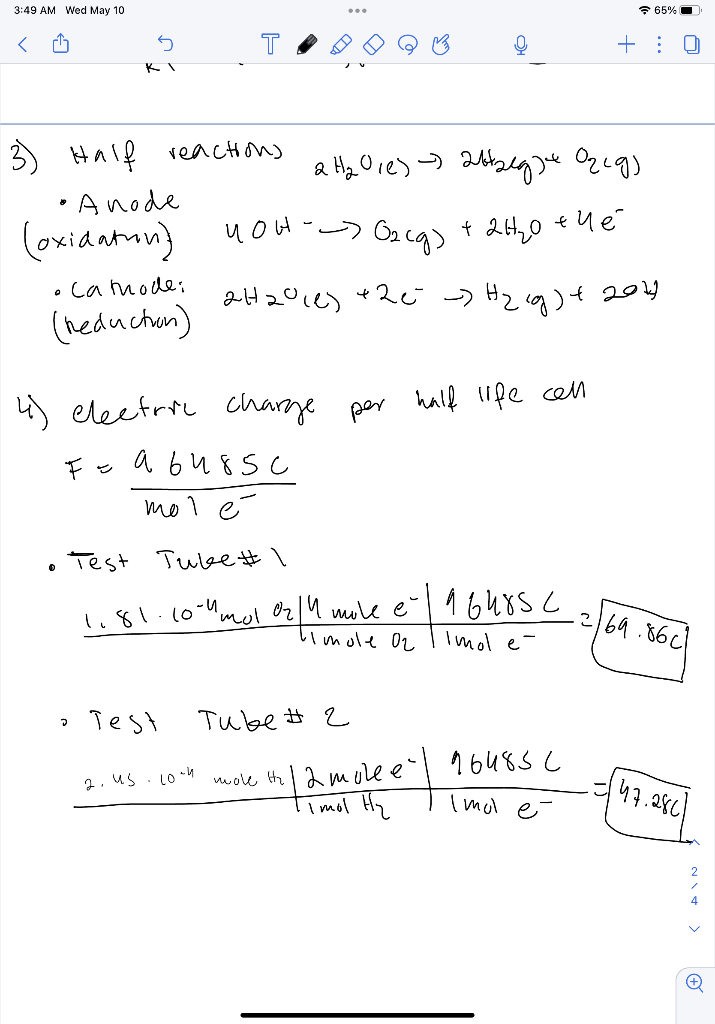 3:49 AM Wed May 10
65%
3) Half reactions 2H₂O(l) → 2H₂(g) + O₂(g)
• Anode
(oxidation) 4OH⁻ → O₂(g) + 2H₂O + 4e⁻
• Cathode:
(reduction) 2H₂O(l) + 2e⁻ → H₂(g) + 2OH
4) electric charge per half life cell
F = 96485C
mol e⁻
• Test Tube # 1
1.81·10⁻⁴ mol O₂ | 4 mole e⁻ | 96485 C = 69.86C
1 mole O₂ | 1 mol e⁻
• Test Tube # 2
2.45·10⁻⁴ mole H₂ | 2 mole e⁻ | 96485 C = 47.28C
1 mol H₂ | 1 mol e⁻
2
4